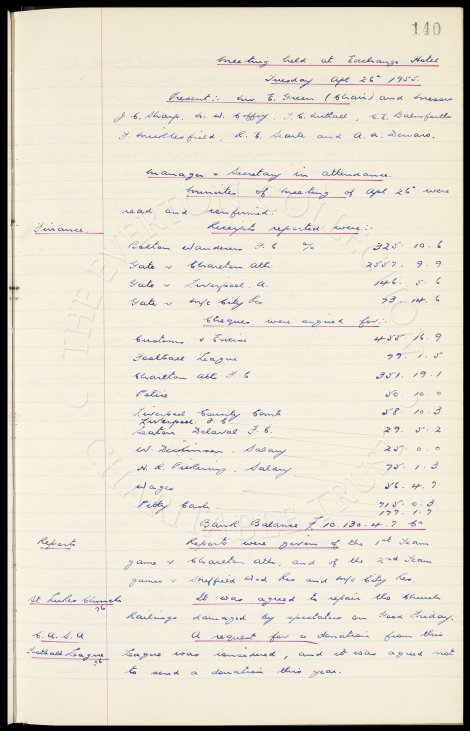 140
Meeting held at Exchange Hotel
Tuesday Apl 26th 1955.
Present:- Mr E. Green (Chair) and Messrs
J. C. Sharp, N. W. Coffey, F. Micklesfield, R. E. Searle and A. N. Denaro.
Manager & Secretary in attendance.
Minutes of meeting of Apl 26th were
read and confirmed.
Finance. Receipts reported were:-
Bolton Wanderers F.C. % 325. 10. 6
Gate v Charlton Ath 2557. 9. 9
Gate v Liverpool. A. 146. 5. 6
Gate v M/c City Res 73. 14. 6
Cheques were signed for:-
Customs & Excise 455. 16. 9
Football League 79. 1. 5
Charlton Ath F.C 351. 19. 1
Police 50. 10. 0
Liverpool County Comb 58. 10. 3
Liverpool. F.C
Seaton Delaval F.C. 29. 5. 2
W. Dickinson. Salary 25. 0. 0
H. R. Pickering. Salary 75. 1. 3
Wages 56. 4. 7
Petty Cash 715. 0. 3
177. 1. 7
Bank Balance £ 10.130. 4. 7 Cr
Reports Reports were given of the 1st Team
game v Charlton Ath, and of the 2nd Team
games v Sheffield Wed Res and M/c City Res.
St Lukes Church It was agreed to repair the Church
Railings damaged by spectators on Good Friday.
C.A.S.A A request for a donation from this
Football League League was considered, and it was agreed not
to send a donation this year.
© THE EVERTON COLLECTION
CHARITABLE TRUST